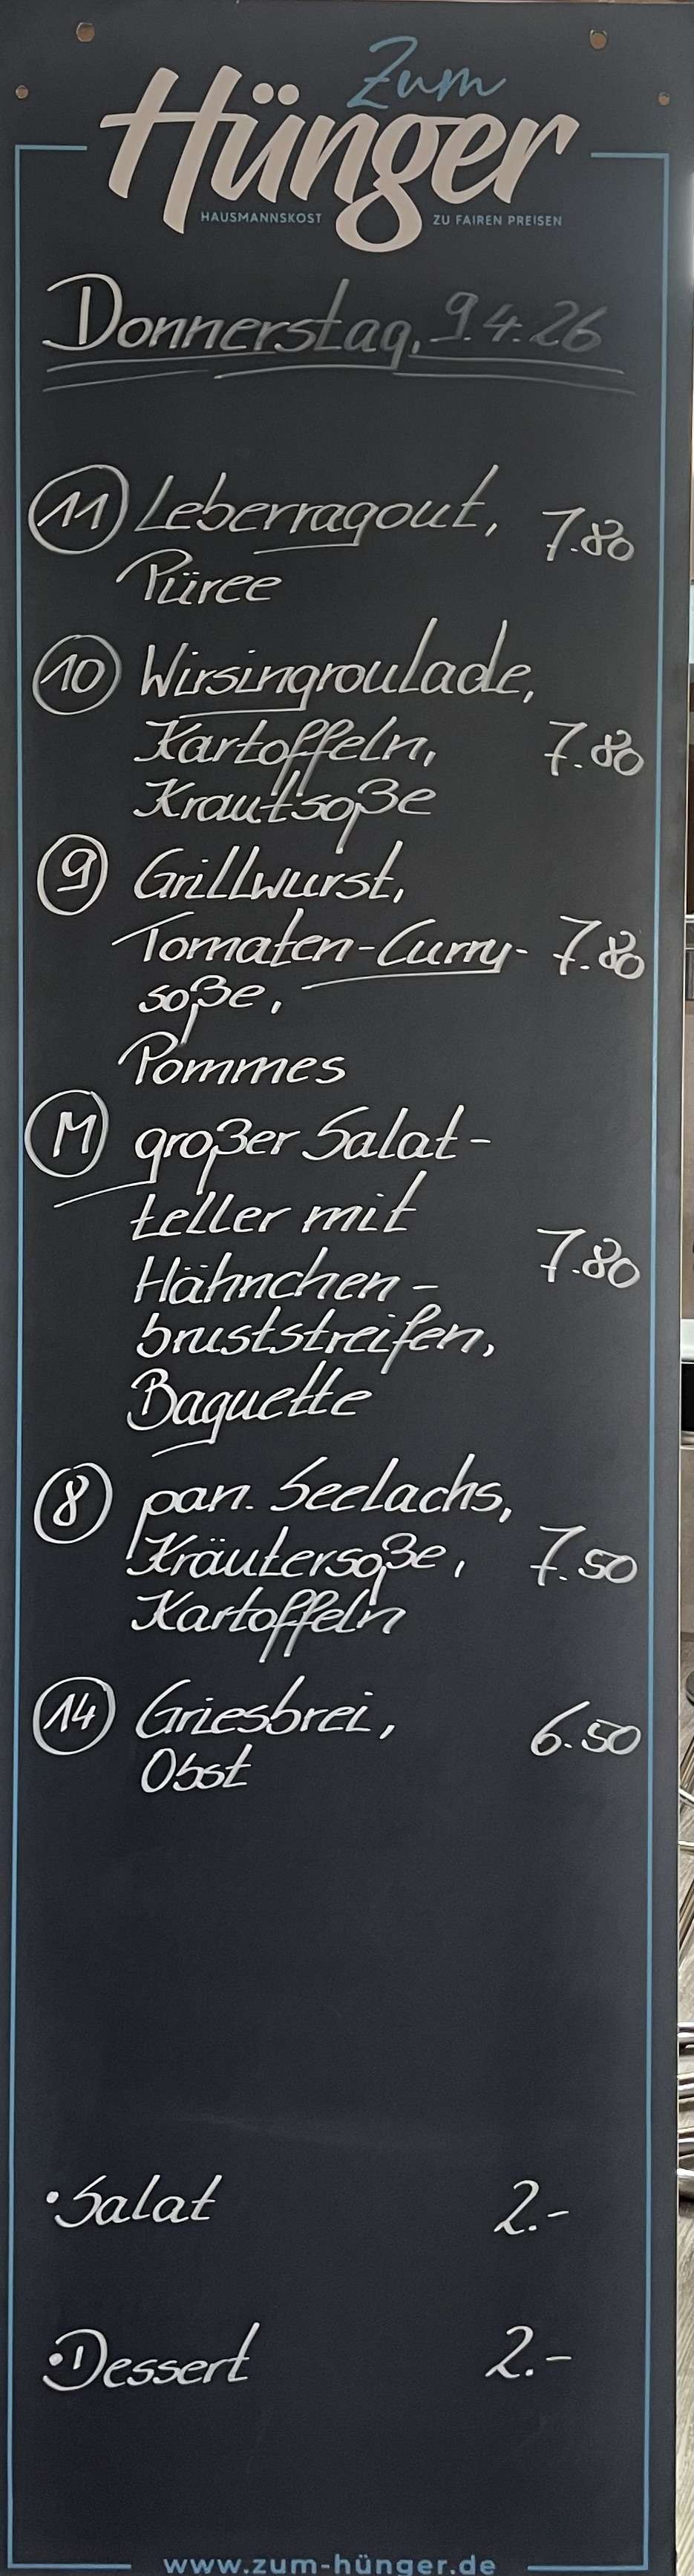 Zum
Hünger
HAUSMANNSKOST ZU FAIREN PREISEN
Donnerstag, 9.4.26
11 Leberragout, 7.80
Püree
10 Wirsingroulade,
Kartoffeln, 7.80
Krautsoße
9 Grillwurst,
Tomaten-Curry- 7.80
soße,
Pommes
M großer Salat-
teller mit
7.80
Hähnchen-
bruststreifen,
Baguette
8 pan. Seelachs,
Kräutersoße, 7.50
Kartoffeln
14 Griesbrei, 6.50
Obst
• Salat 2.-
• Dessert 2.-
www.zum-hünger.de